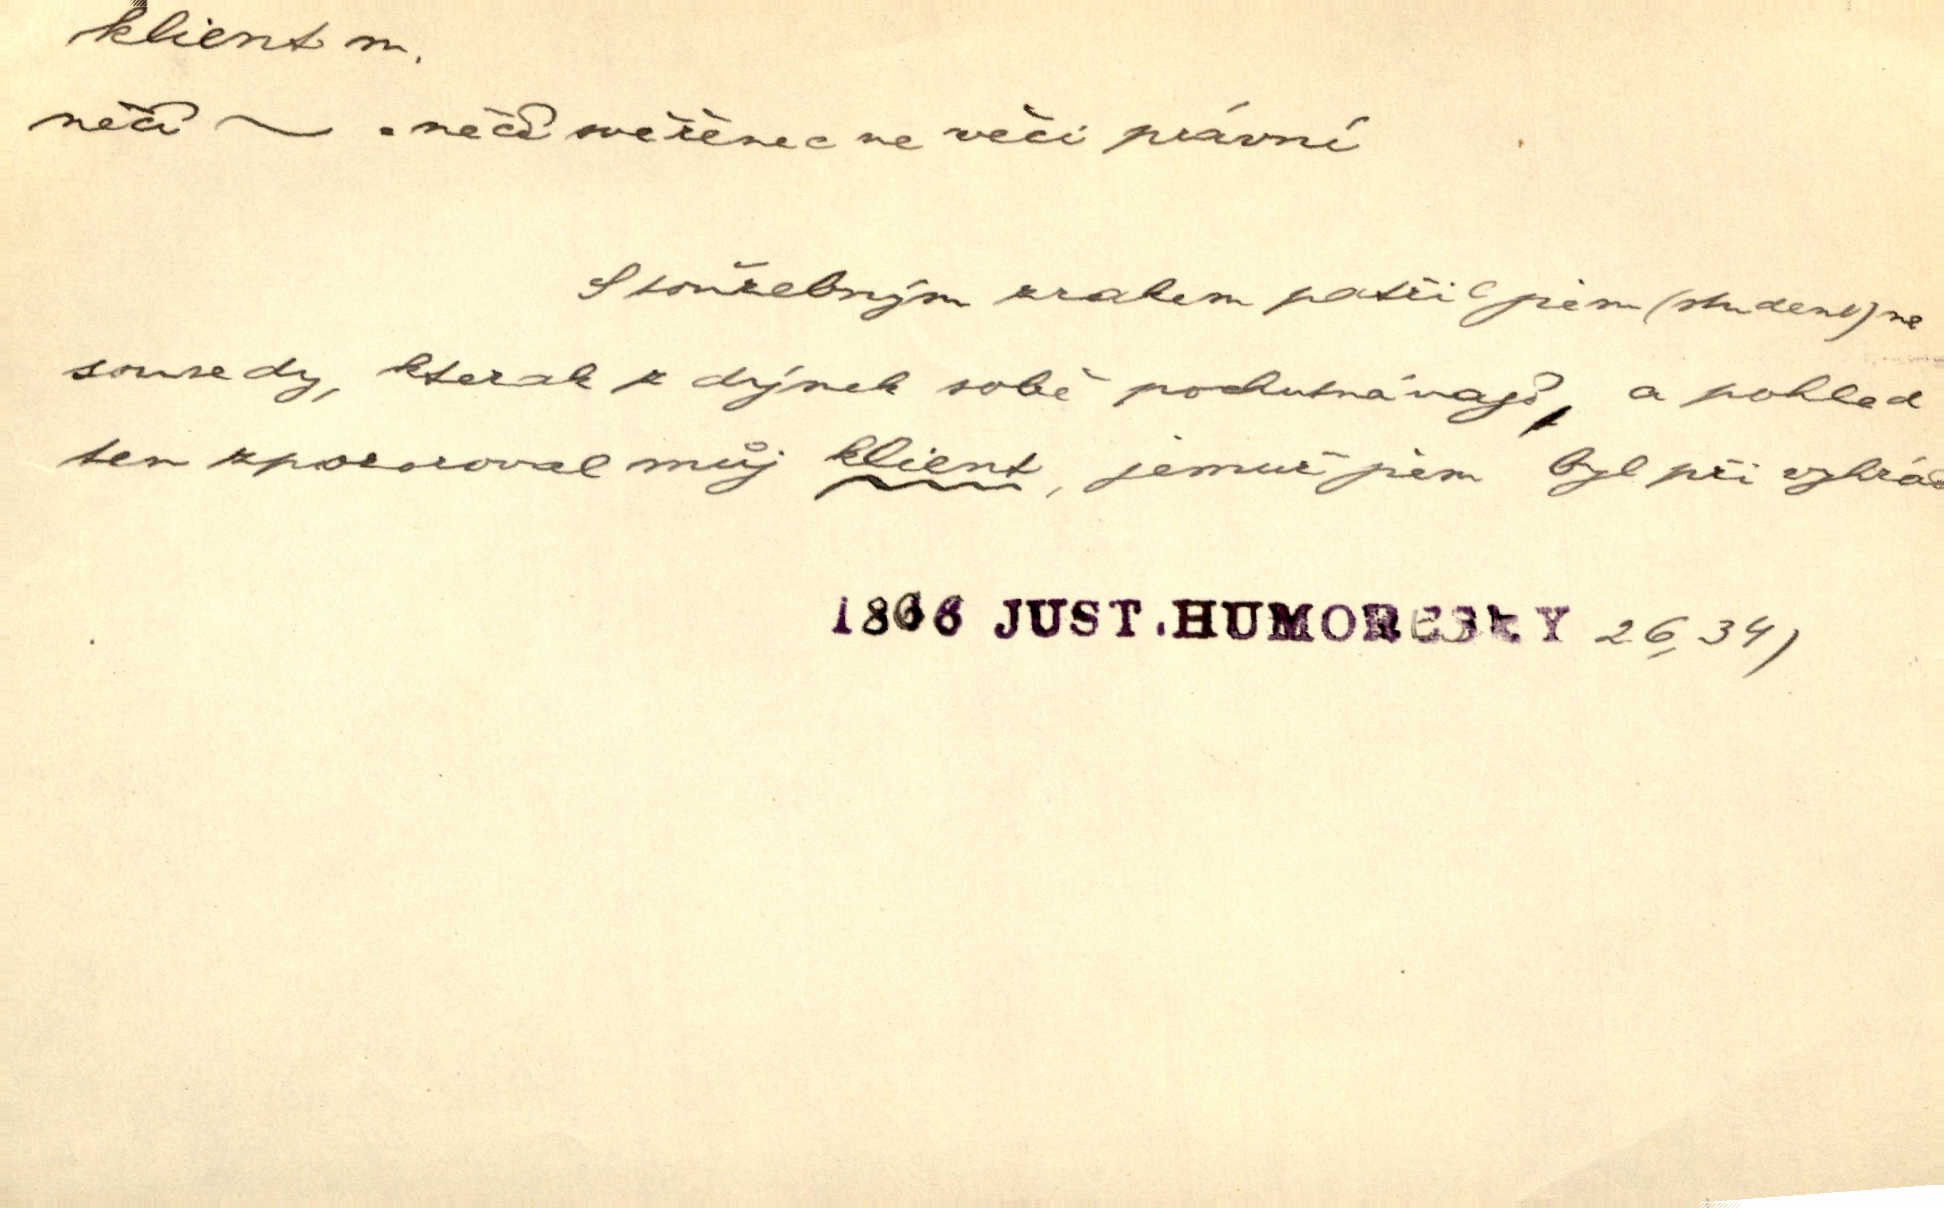 klient m.
něčí ~ . něčí svěřenec ve věci právní
S toužebným zrakem patřil jsem (student) na
sousedy, kterak z dýmek sobě pochutnávají, a pohled
ten zpozoroval můj klient, jemuž jsem byl při
1866 JUST.HUMORESKY 26, 34)